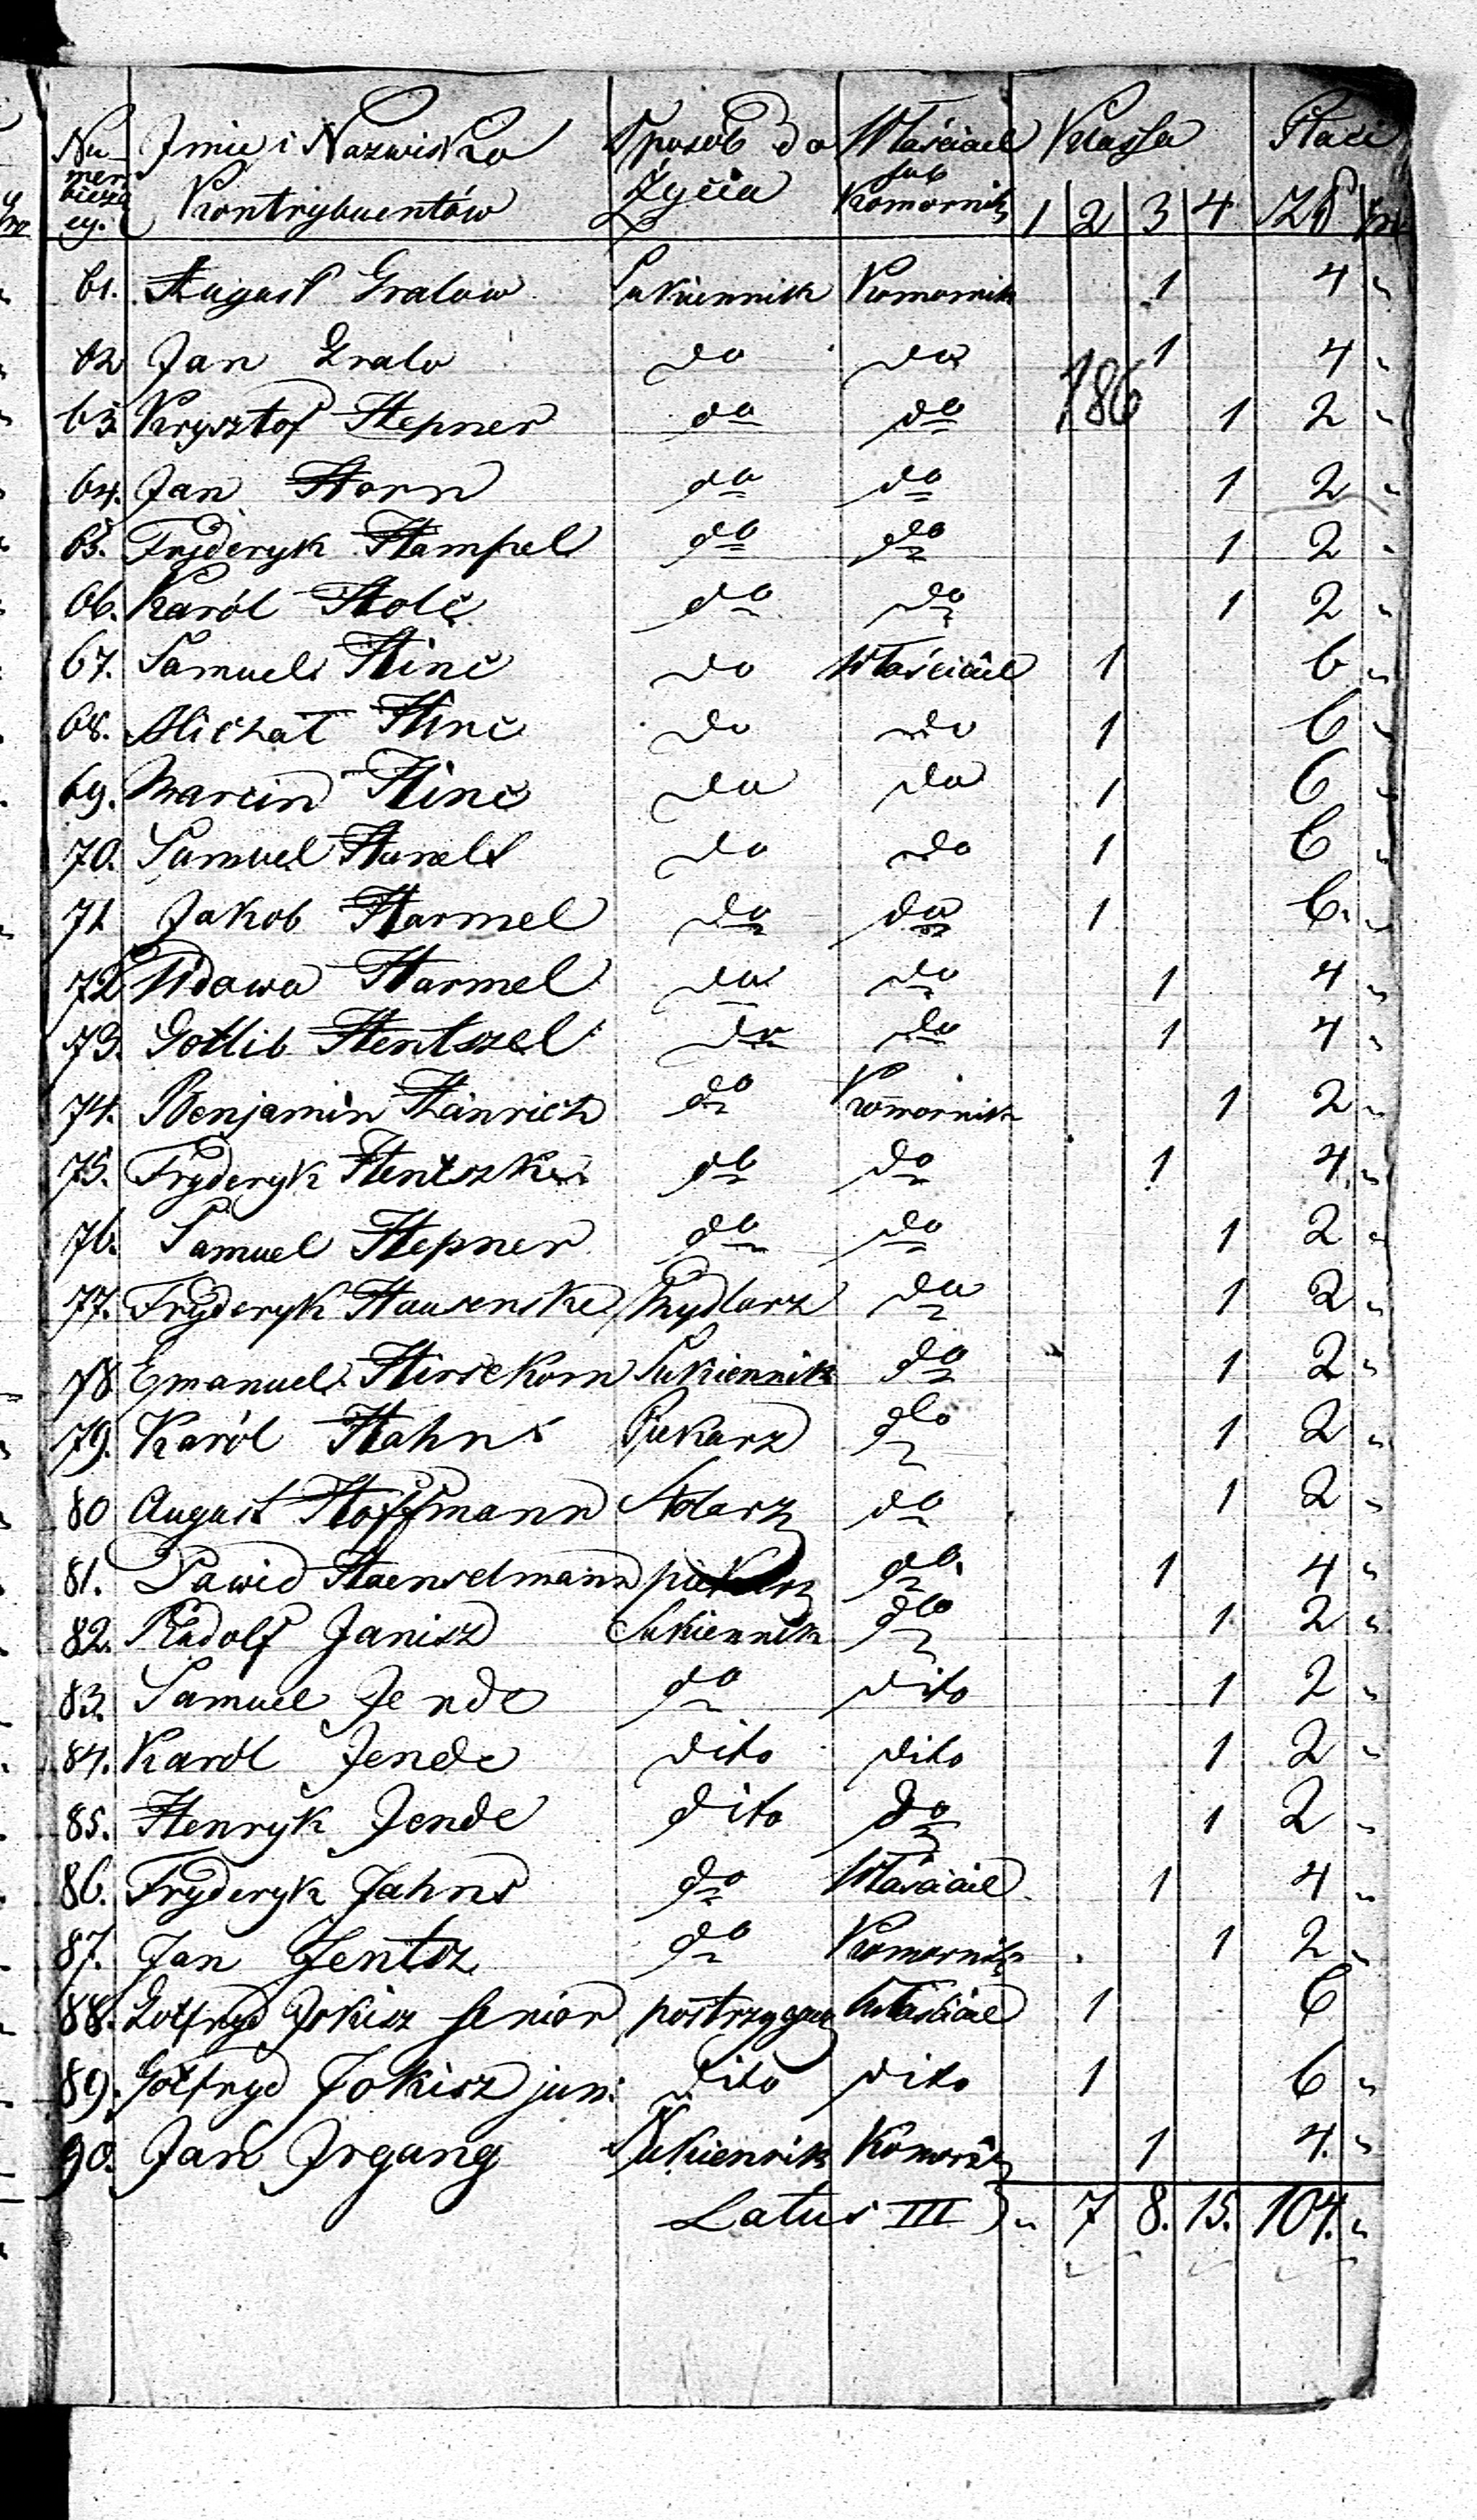 Nu- Jmie i Nazwisko Sposób do Właściciel Klassa Płaci
mer lub
bieżą Kontrybuentów Życia Komornik 1 2 3 4 Zł
cy.
61. August Gralow Sukiennik Komornik 1 4 "
62 Jan Gralo do do 1 4 "
186
63 Krysztof Hepner do do 1 2 "
64. Jan Horn do do 1 2 "
65. Fryderyk Hampel do do 1 2 "
66. Karól Holc do do 1 2 "
67. Samuel Hinc do Właściciel 1 6 "
68. Michał Hinc do do 1 6 "
69. Marcin Hinc do do 1 6 "
70. Samuel do do 1 6 "
71 Jakob Harmel do do 1 6. "
72 Wdowa Harmel do do 1 4 "
73. Gotlib Hentszel do do 1 4 "
74. Benjamin Hänrich do Komornik 1 2 "
75. Fryderyk do do 1 4. "
76. Samuel Hepner do do 1 2 "
77. Fryderyk Hausenske Mydlarz do 1 2 "
78 Emanuel Hirsekorn Sukiennik do 1 2 "
79. Karól Hahns Piekarz do 1 2 "
80 August Hoffmann Stolarz do 1 2 "
81. Dawid Haenselmann piekarz do 1 4 "
82. Rudolf Janisz Sukiennik do 1 2 "
83. Samuel Jende do dito 1 2 "
84. Karól Jende dito dito 1 2 "
85. Henryk Jende dito do 1 2 "
86. Fryderyk Jahns do Właściciel 1 4 "
87. Jan Jentsz do Komornik 1 2 "
88. Gotfryd Jokisz senior postrzygacz Właściciel 1 6
89. Gotfryd Jokisz jun: dito dito 1 6 "
90. Jan Jrgang Sukiennik Komornik 1 4. "
Latus III " 7 8. 15. 104. "